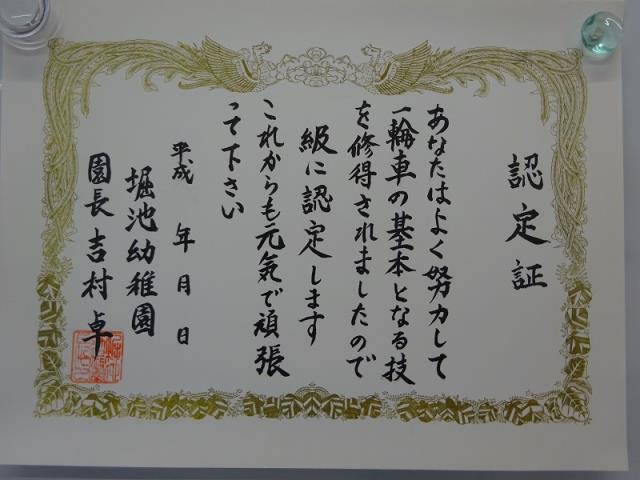 認定証
あなたはよく努力して
一輪車の基本となる技
を修得されましたので
級に認定します
これからも元気で頑張
って下さい
平成 年 月 日
堀池幼稚園
園長 吉村 卓